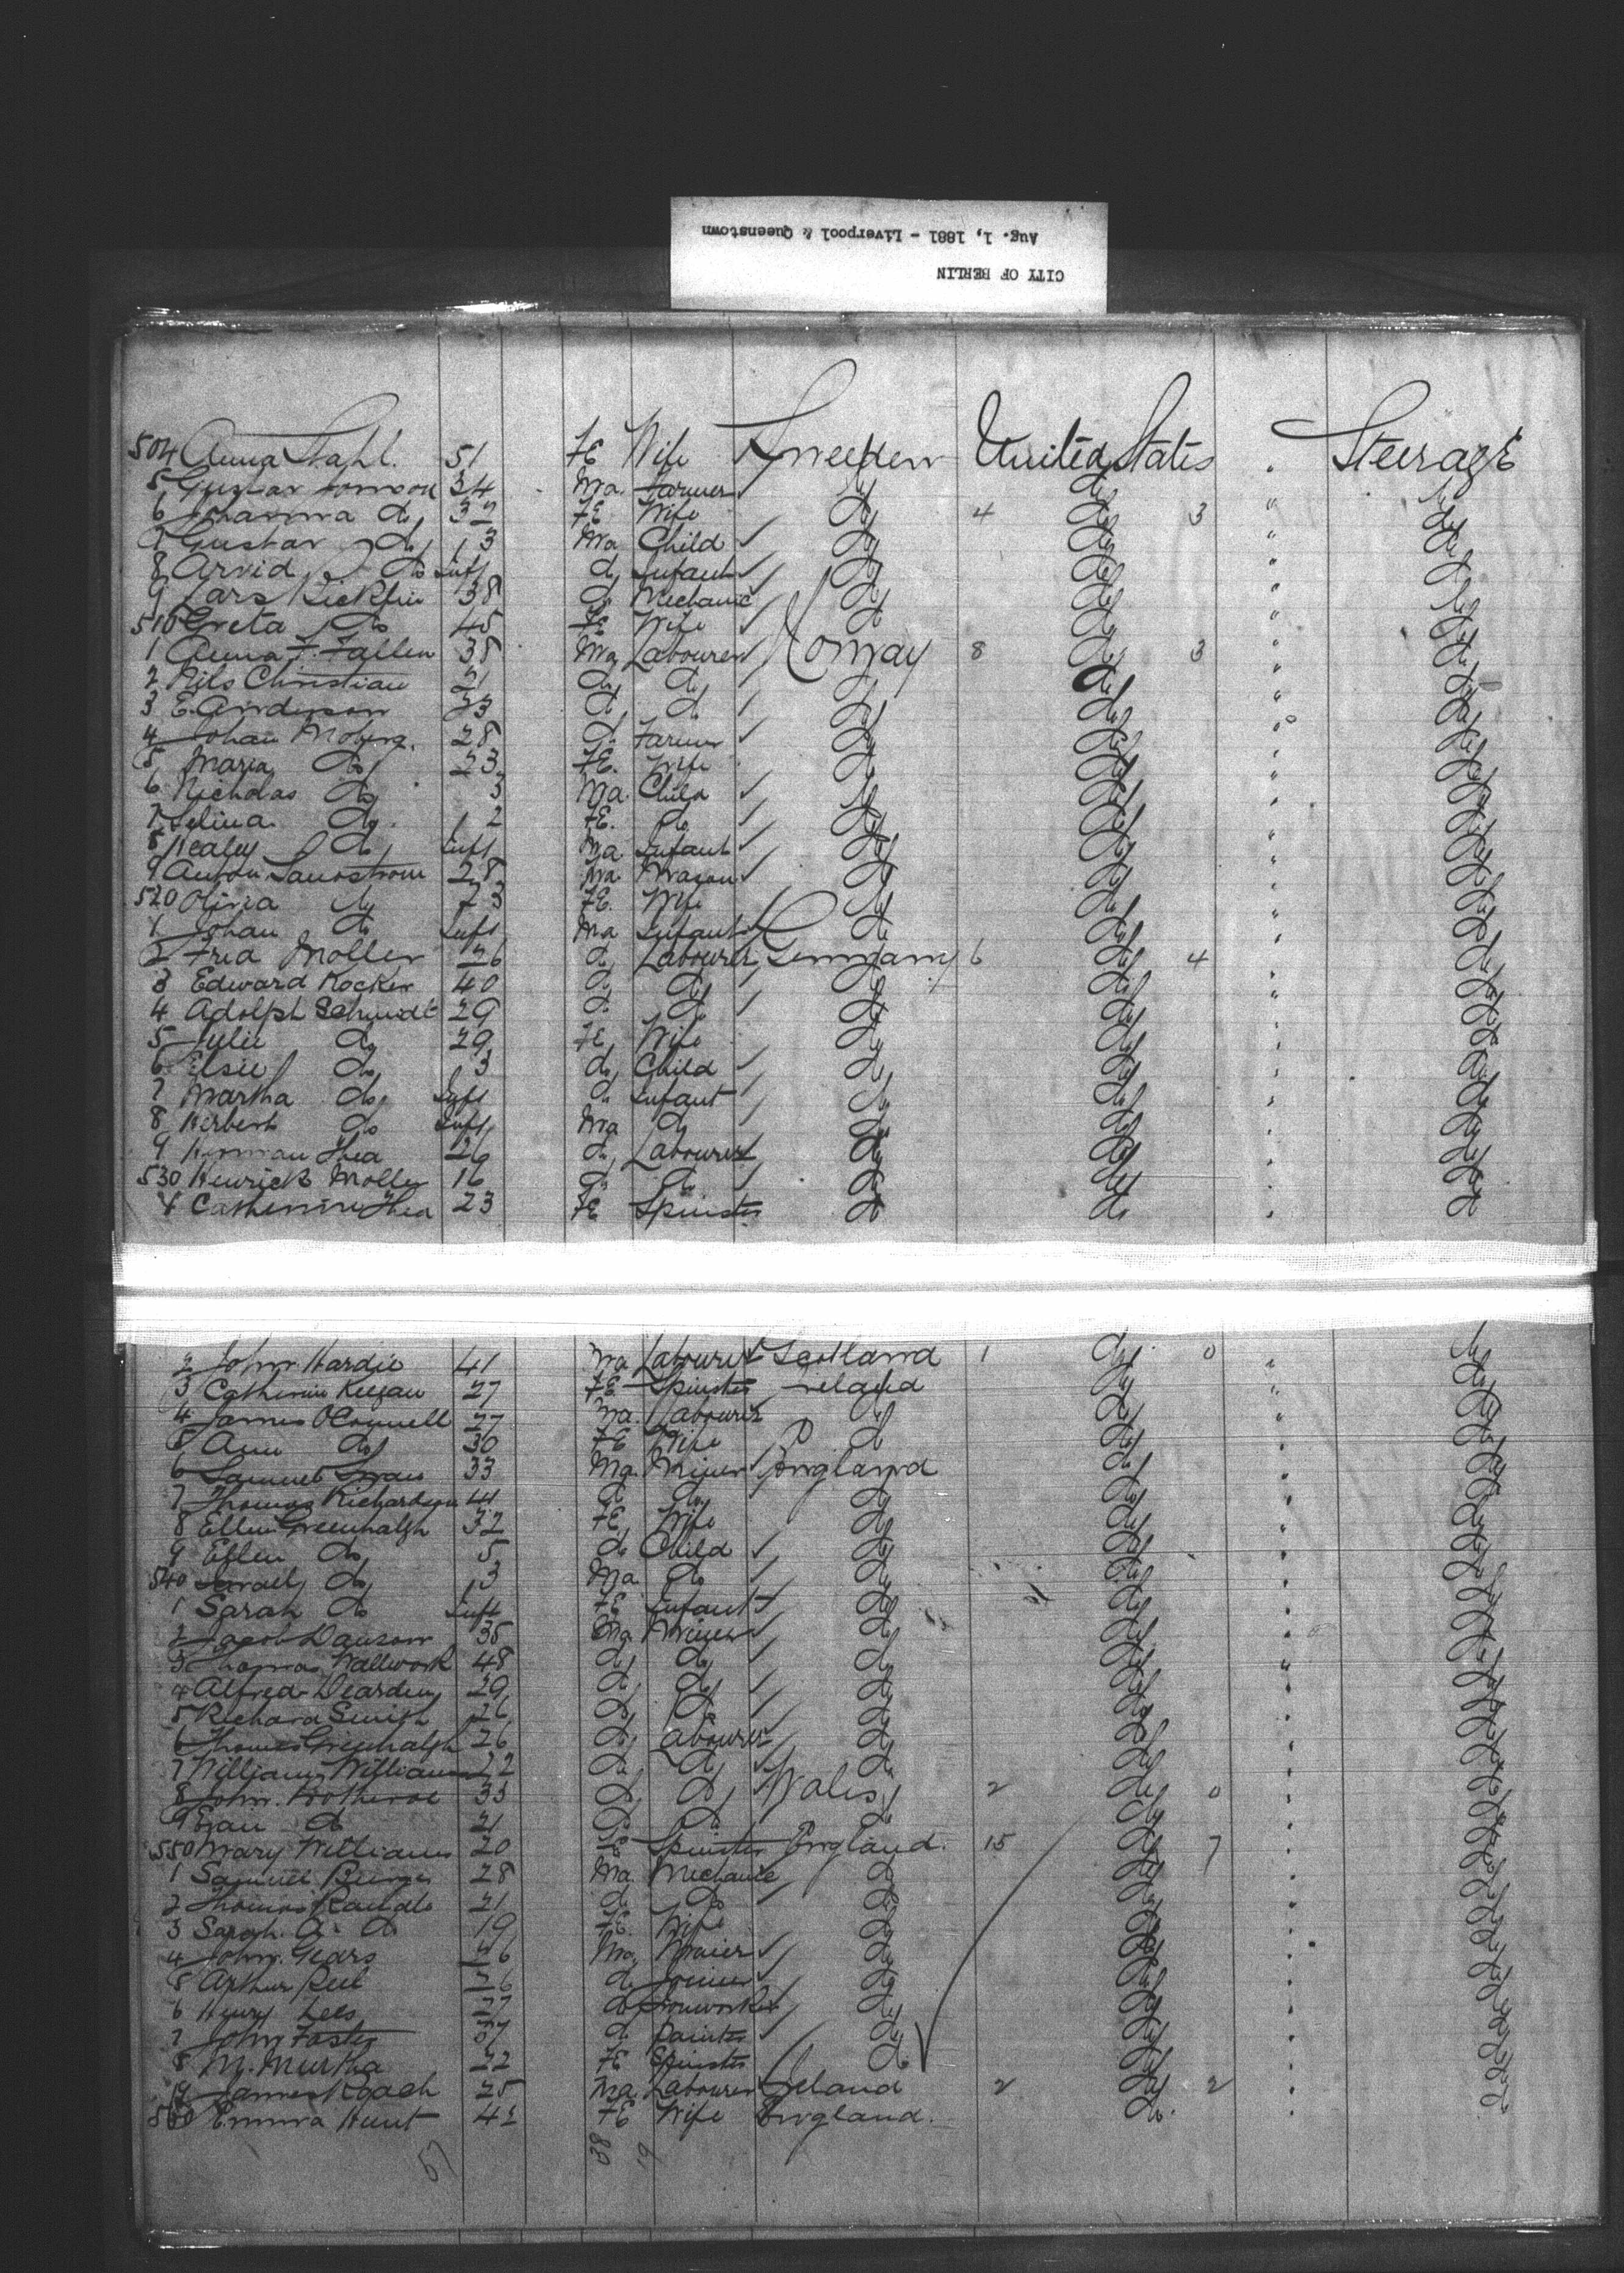 CITY OF BERLIN
Aug. 1, 1881 - Liverpool & Queenstown
504 Anna Stahl. 51 FE Wife Sweeden United States " Steerage
5 Gustav 34 Ma. Farmer do do " do
6 Johanna do 32 FE Wife do 4 do 3 " do
7 Gustav do 3 Ma Child do do " do
8 Arvid do Inft do Infant do do " do
9 Lars 38 do Mechanic do do " do
510 Greta do 45 FE Wife do do " do
1 Anna F. Fallen 38 Ma Labourer Norway 8 do 3 " do
2 Nils Christian 21 do do do do " do
3 E. Anderson 23 do do do do " do
4 Johan Moberg. 28 do Farmer do do " do
5 Maria do 23 FE. Wife do do " do
6 Nicholas do 3 Ma. Child do do " do
7 Selina do 2 FE. do do do " do
8 do Inft Ma Infant do do " do
9 Anton 28 Ma Mason do do " do
520 Olivia do 23 FE. Wife do do " do
1 Johan do Inft Ma Infant do do " do
2 Fred Moller 26 do Labourer Germany 6 do 4 " do
3 Edward Rocker 40 do do do do " do
4 Adolph Schmidt 29 do do do do " do
5 Julie do 29 FE Wife do do " do
6 Elsie do 3 do Child do do " do
7 Martha do Inft do Infant do do " do
8 Herbert do Inft Ma do do do " do
9 Herman Thea 26 do Labourer do do " do
530 Henrick Moller 16 do do do do " do
1 Catherine Thea 23 FE Spinster do do " do
2 John Hardie 41 Ma Labourer Scotland 1 do 0 " do
3 Catherine Keegan 27 FE Spinster Ireland do " do
4 James OConnell 27 Ma. Labourer do do " do
5 Ann do 30 FE Wife do do " do
6 Samuel Swan 33 Ma. Miner England do " do
7 Thomas Richardson 41 do do do do " do
8 Ellen Greenhalgh 32 FE Wife do do " do
9 Ellen do 5 do Child do do " do
540 Israel do 3 Ma do do do " do
1 Sarah do Inft FE Infant do do " do
2 Jacob Dawson 35 Ma Miner do do " do
3 Thomas Wallwork 48 do do do do " do
4 Alfred Dearden 29 do do do do " do
5 Richard Smith 26 do do do do " do
6 Thomas Greenhalgh 26 do Labourer do do " do
7 William Williams 22 do do do do " do
8 John 33 do do Wales 2 do 0 " do
9 Evan do 21 do do do do " do
550 Mary Williams 20 FE Spinster England. 15 do 7 " do
1 Samuel 28 Ma. Mechanic do do " do
2 Thomas 21 do do do do " do
3 Sarah. A. do 19 FE. Wife do do " do
4 John Gears 46 Ma do do " do
5 Arthur 26 do Joiner do do " do
6 Henry Lees 27 do Ironworker do do " do
7 John Foster 37 do Painter do do " do
8 M. Murtha 22 FE Spinster do do " do
9 James Roach 25 Ma Labourer Ireland 2 do 2 " do
560 Emma Hunt 42 FE Wife England. do " do
57 38 19